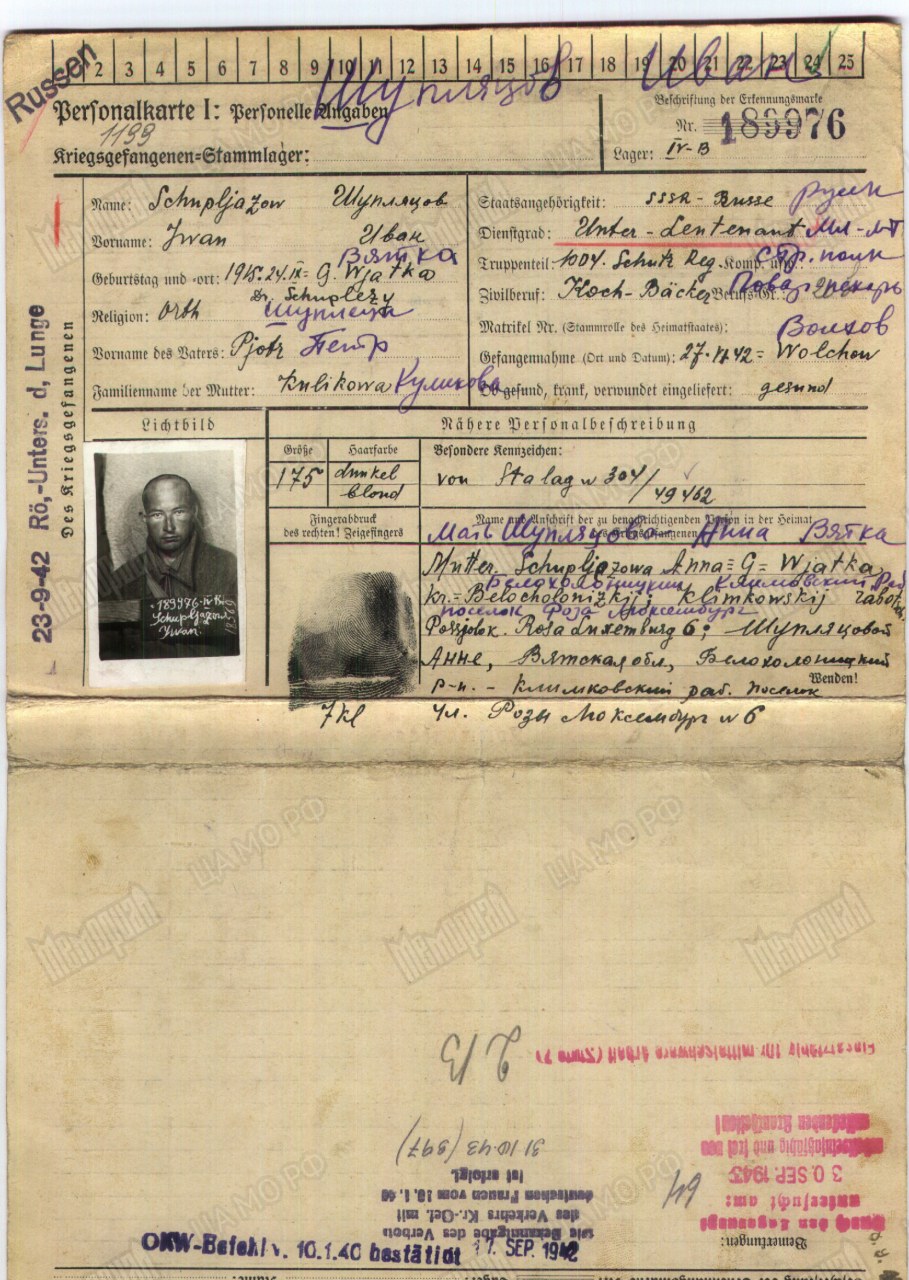 Russen
2 3 4 5 6 7 8 9 10 11 12 13 14 15 16 17 18 19 20 21 22 23 24 25
Шупляцов Иван
Personalkarte I: Personelle Angaben
1199
Kriegsgefangenen=Stammlager:
Beschriftung der Erkennungsmarke
Nr. 189976
Lager: IV-B
Name: Schupljazow Шупляцов
Vorname: Jwan Иван
Вятка
Geburtstag und -ort: 1915. 24. IX= G. Wjatka
Schuplezy
Religion: Orth
Vorname des Vaters: Pjotr Петр
Familienname der Mutter: Kulikowa Куликова
Staatsangehörigkeit: SSSR - Russe
Dienstgrad: Unter-Leutenant Мл-лт
Truppenteil: 1004. Schutz Reg. Komp. usw. Стр. полк
Zivilberuf: Koch-Bäcker Berufs-Gr.: Повар пекарь
Matrikel Nr. (Stammrolle des Heimatstaates):
Волхов
Gefangennahme (Ort und Datum): 27. VI 42= Wolchow
Ob gesund, krank, verwundet eingeliefert: gesund
23-9-42 Rö.-Unters. d, Lunge
Des Kriegsgefangenen
Lichtbild
Nähere Personalbeschreibung
Größe
Haarfarbe
Besondere Kennzeichen:
175
dunkel
blond
von Stalag № 304/
Fingerabdruck
des rechten! Zeigefingers
Name und Anschrift der zu benachrichtigenden Person in der Heimat
des Kriegsgefangenen
Мать Шупляцова Анна Вятка
Mutter. Schupljazowa Anna= G= Wjatka
Белохолуницкий Климовский Раб
kr.= Belocholonizkij; Klimkowskij rabot
поселок Роза Люксембург
Possjolok. Rosa Luxemburg 6; Шупляцовой
Анне, Вятская обл, Белохолоницкий
Wenden!
р-н. - Климковский раб. поселок
7kl
ул. Розы Люксембург № 6
189976-IV B
Schupljazow
Jwan.
Мемориал
ЦАМО РФ
2 B
Einsatzfähig für mittelschwere Arbeit (Stufe 2)
31.10.43 (397)
30. SEP. 1943
untersucht am:
Bemerkungen:
die Bekanntgabe des Verbots
des Verkehrs Kr.-Gef. mit
deutschen Frauen vom 10. 1. 40
ist erfolgt.
OKW-Befehl v. 10.1.40 bestätigt 17. SEP. 1942